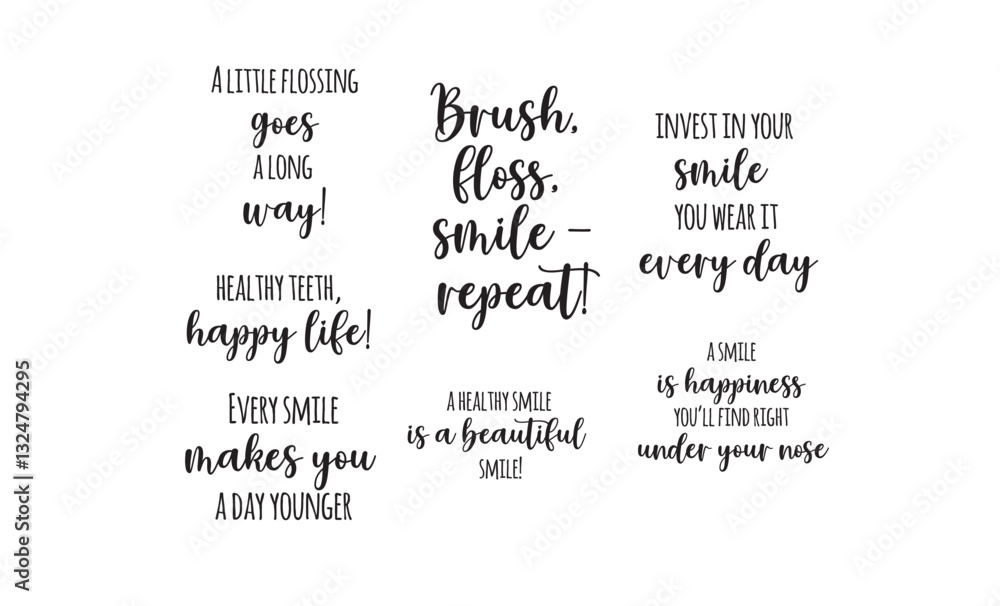 A LITTLE FLOSSING
goes
A LONG
way!
HEALTHY TEETH,
happy life!
EVERY SMILE
makes you
A DAY YOUNGER
Brush,
floss,
smile –
repeat!
A HEALTHY SMILE
is a beautiful
SMILE!
INVEST IN YOUR
smile
YOU WEAR IT
every day
A SMILE
is happiness
YOU'LL FIND RIGHT
under your nose
Adobe Stock | #1324794295